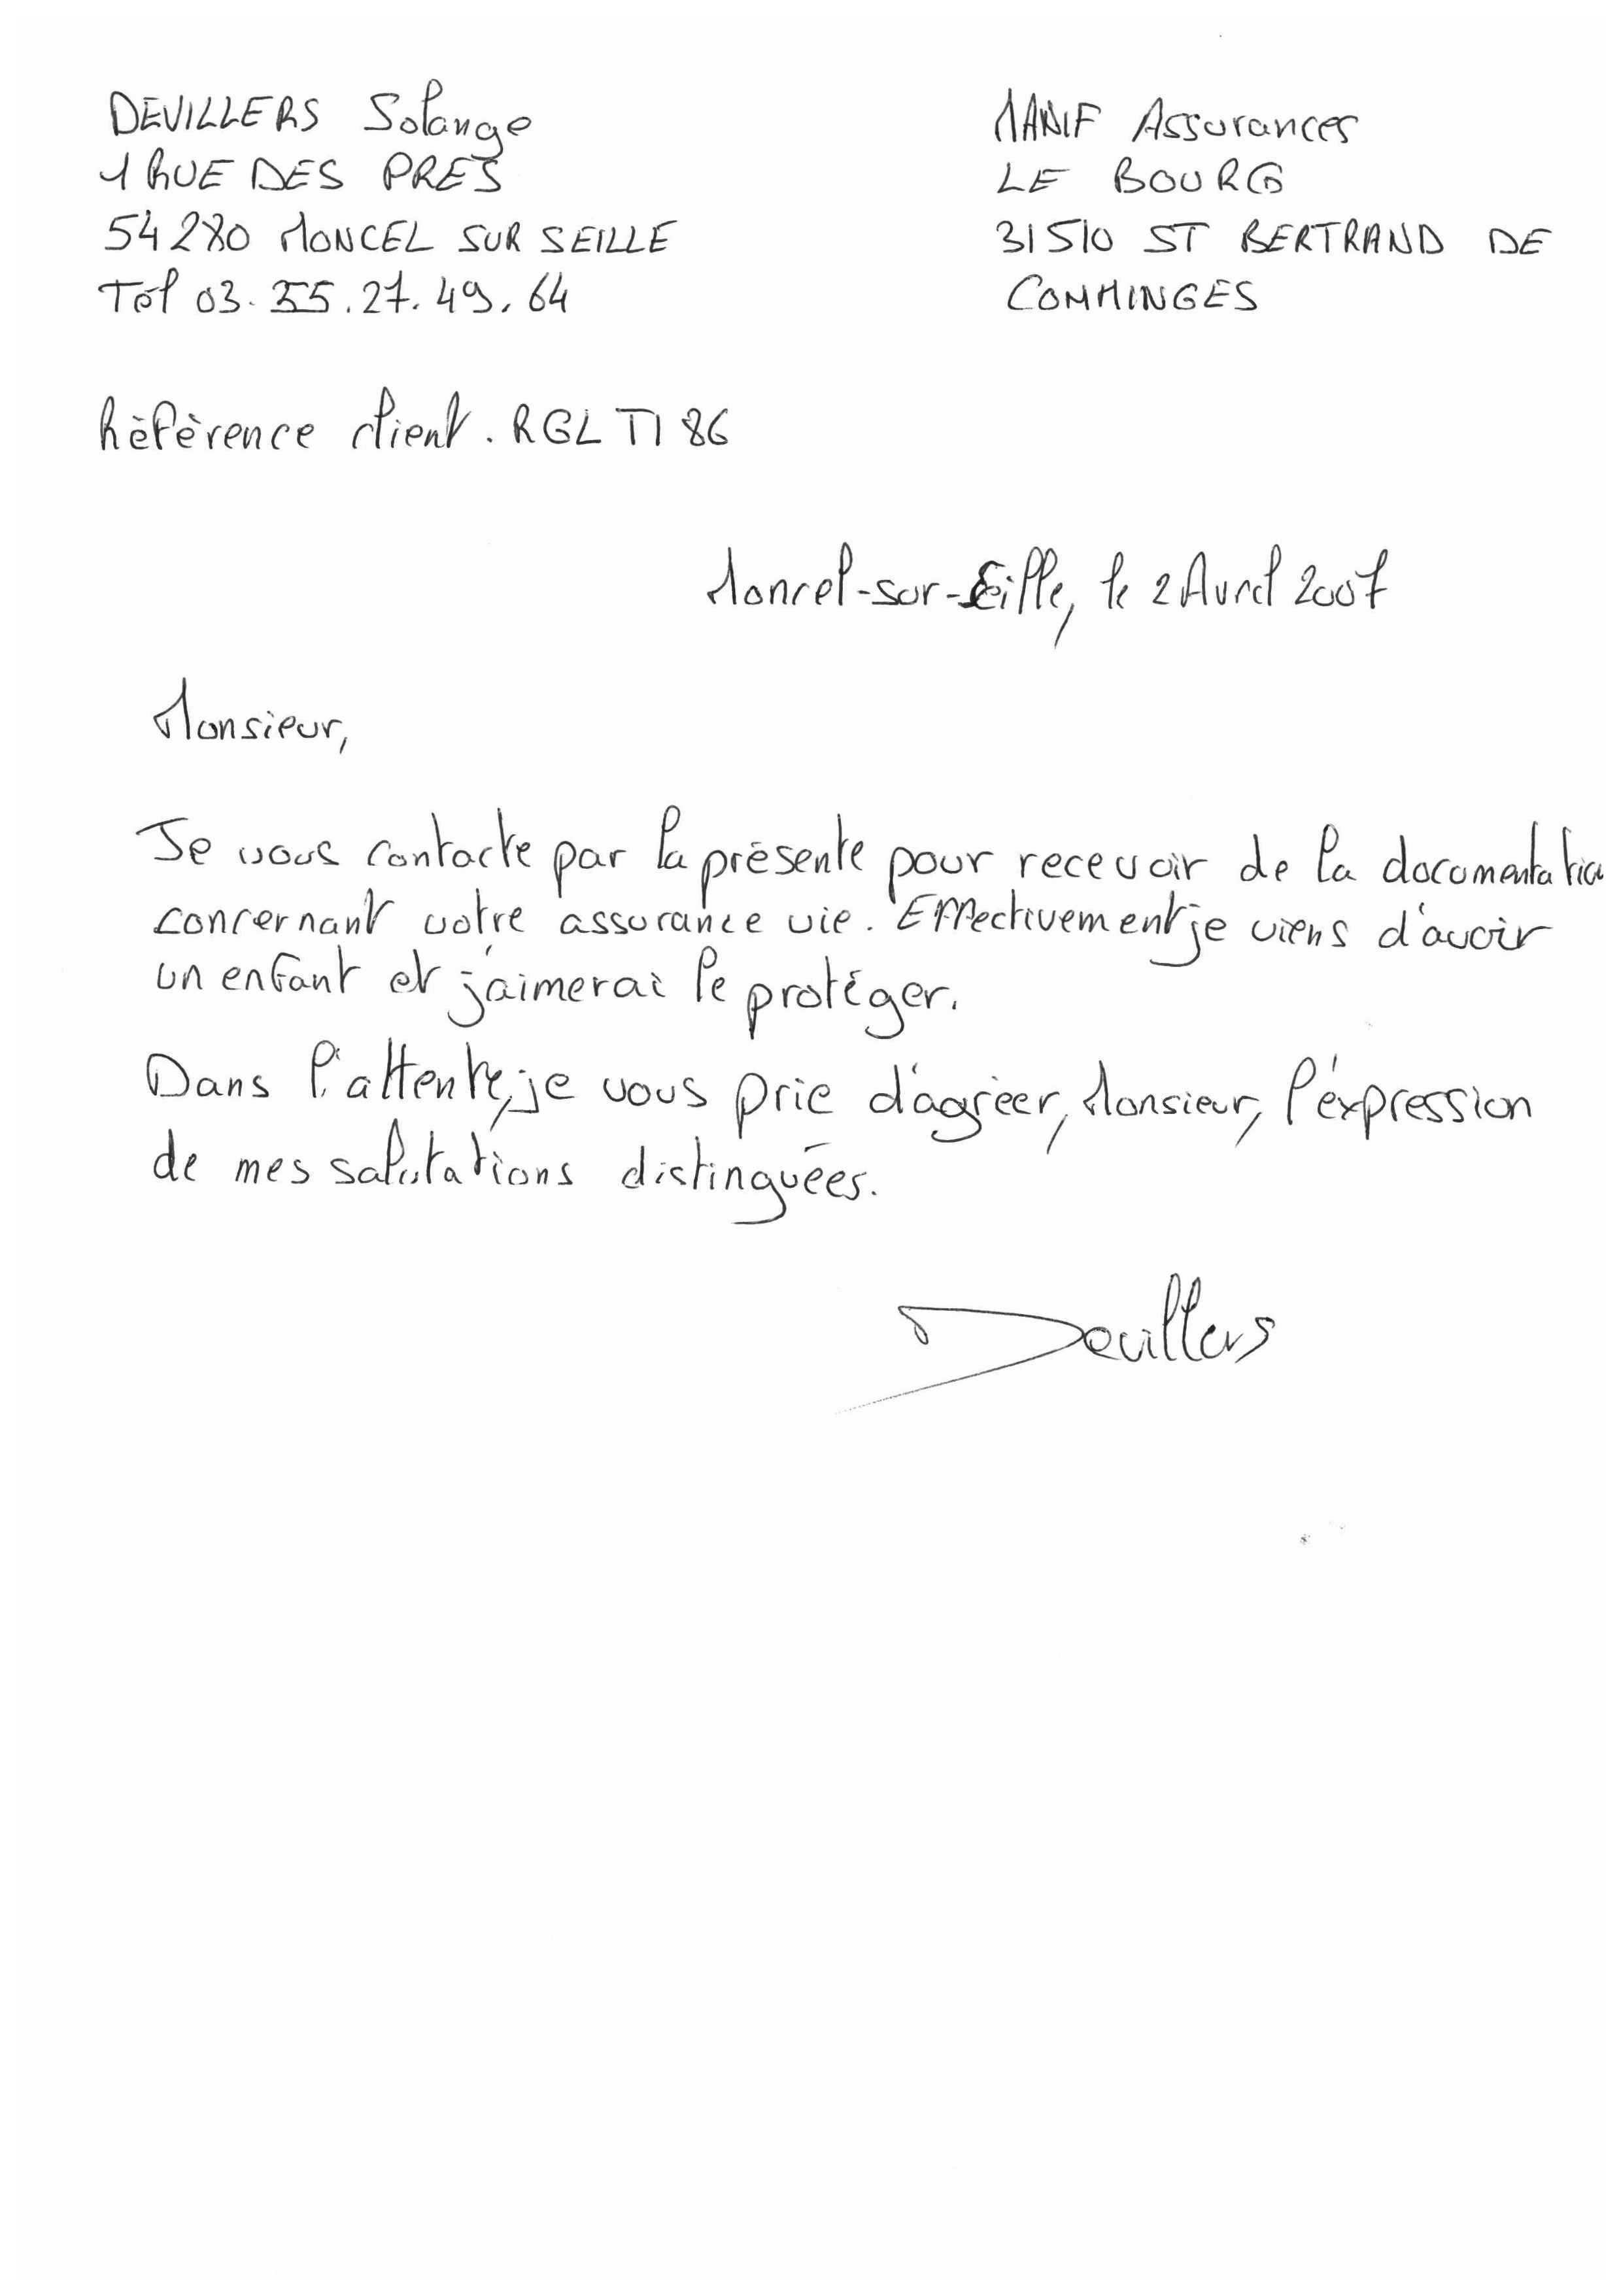 DEVILLERS Solange
1 RUE DES PRES
54280 MONCEL SUR SEILLE
Tél 03.55.27.49.64
MANIF Assurances
LE BOURG
31510 ST BERTRAND DE
COMMINGES
Référence client. RGLTI86
Moncel-sur-Seille, le 2 Avril 2007
Monsieur,
Je vous contacte par la présente pour recevoir de la documentation
concernant votre assurance vie. Effectivement je viens d'avoir
un enfant et j'aimerai le protéger.
Dans l'attente, je vous prie d'agréer, Monsieur, l'éxpression
de mes salutations distinguées.
Devillers